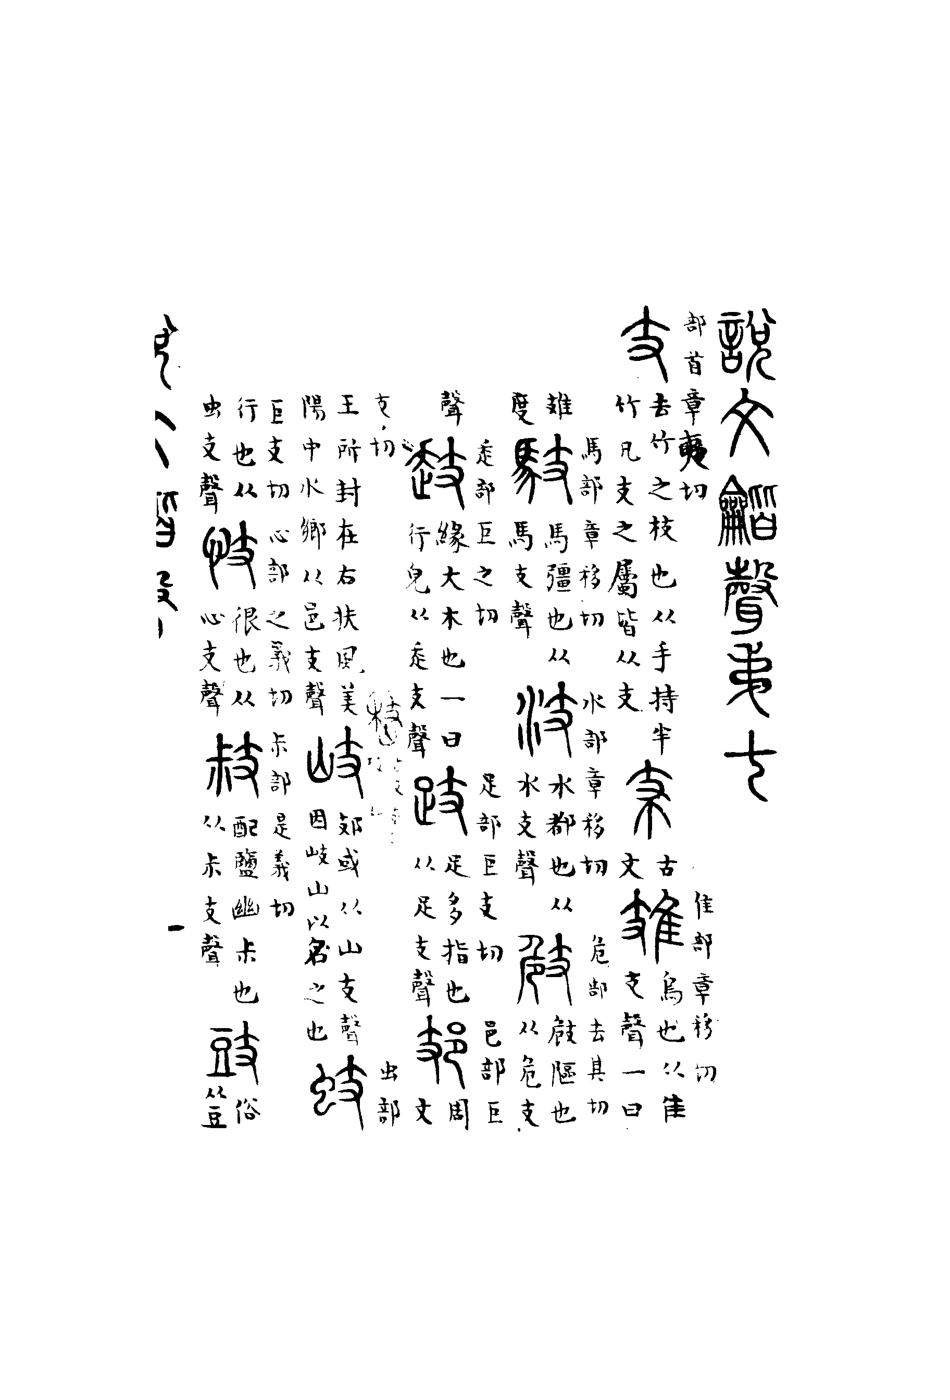 說文龤聲弟七
部首章夷切
支 去竹之枝也从手持半竹凡支之屬皆从支 𠦙 古文
隹部章移切
䧴 烏也从隹支聲一曰雉度
馬部章移切
馶 馬彊也从馬支聲
水部章移切
汥 水都也从水支聲
危部去其切
㩻 㩻隑也从危支聲
走部巨之切
𧺆 緣大木也一曰行皃从走支聲
足部巨支切
跂 足多指也从足支聲
邑部巨支切
𨙸 周文王所封在右扶風美陽中水鄉从邑支聲
岐 郊或从山支聲因岐山以名之也
虫部巨支切
蚑 行也从虫支聲
心部之義切
忮 很也从心支聲
尗部是義切
敊 配鹽幽尗也从尗支聲
豉 俗从豆
一